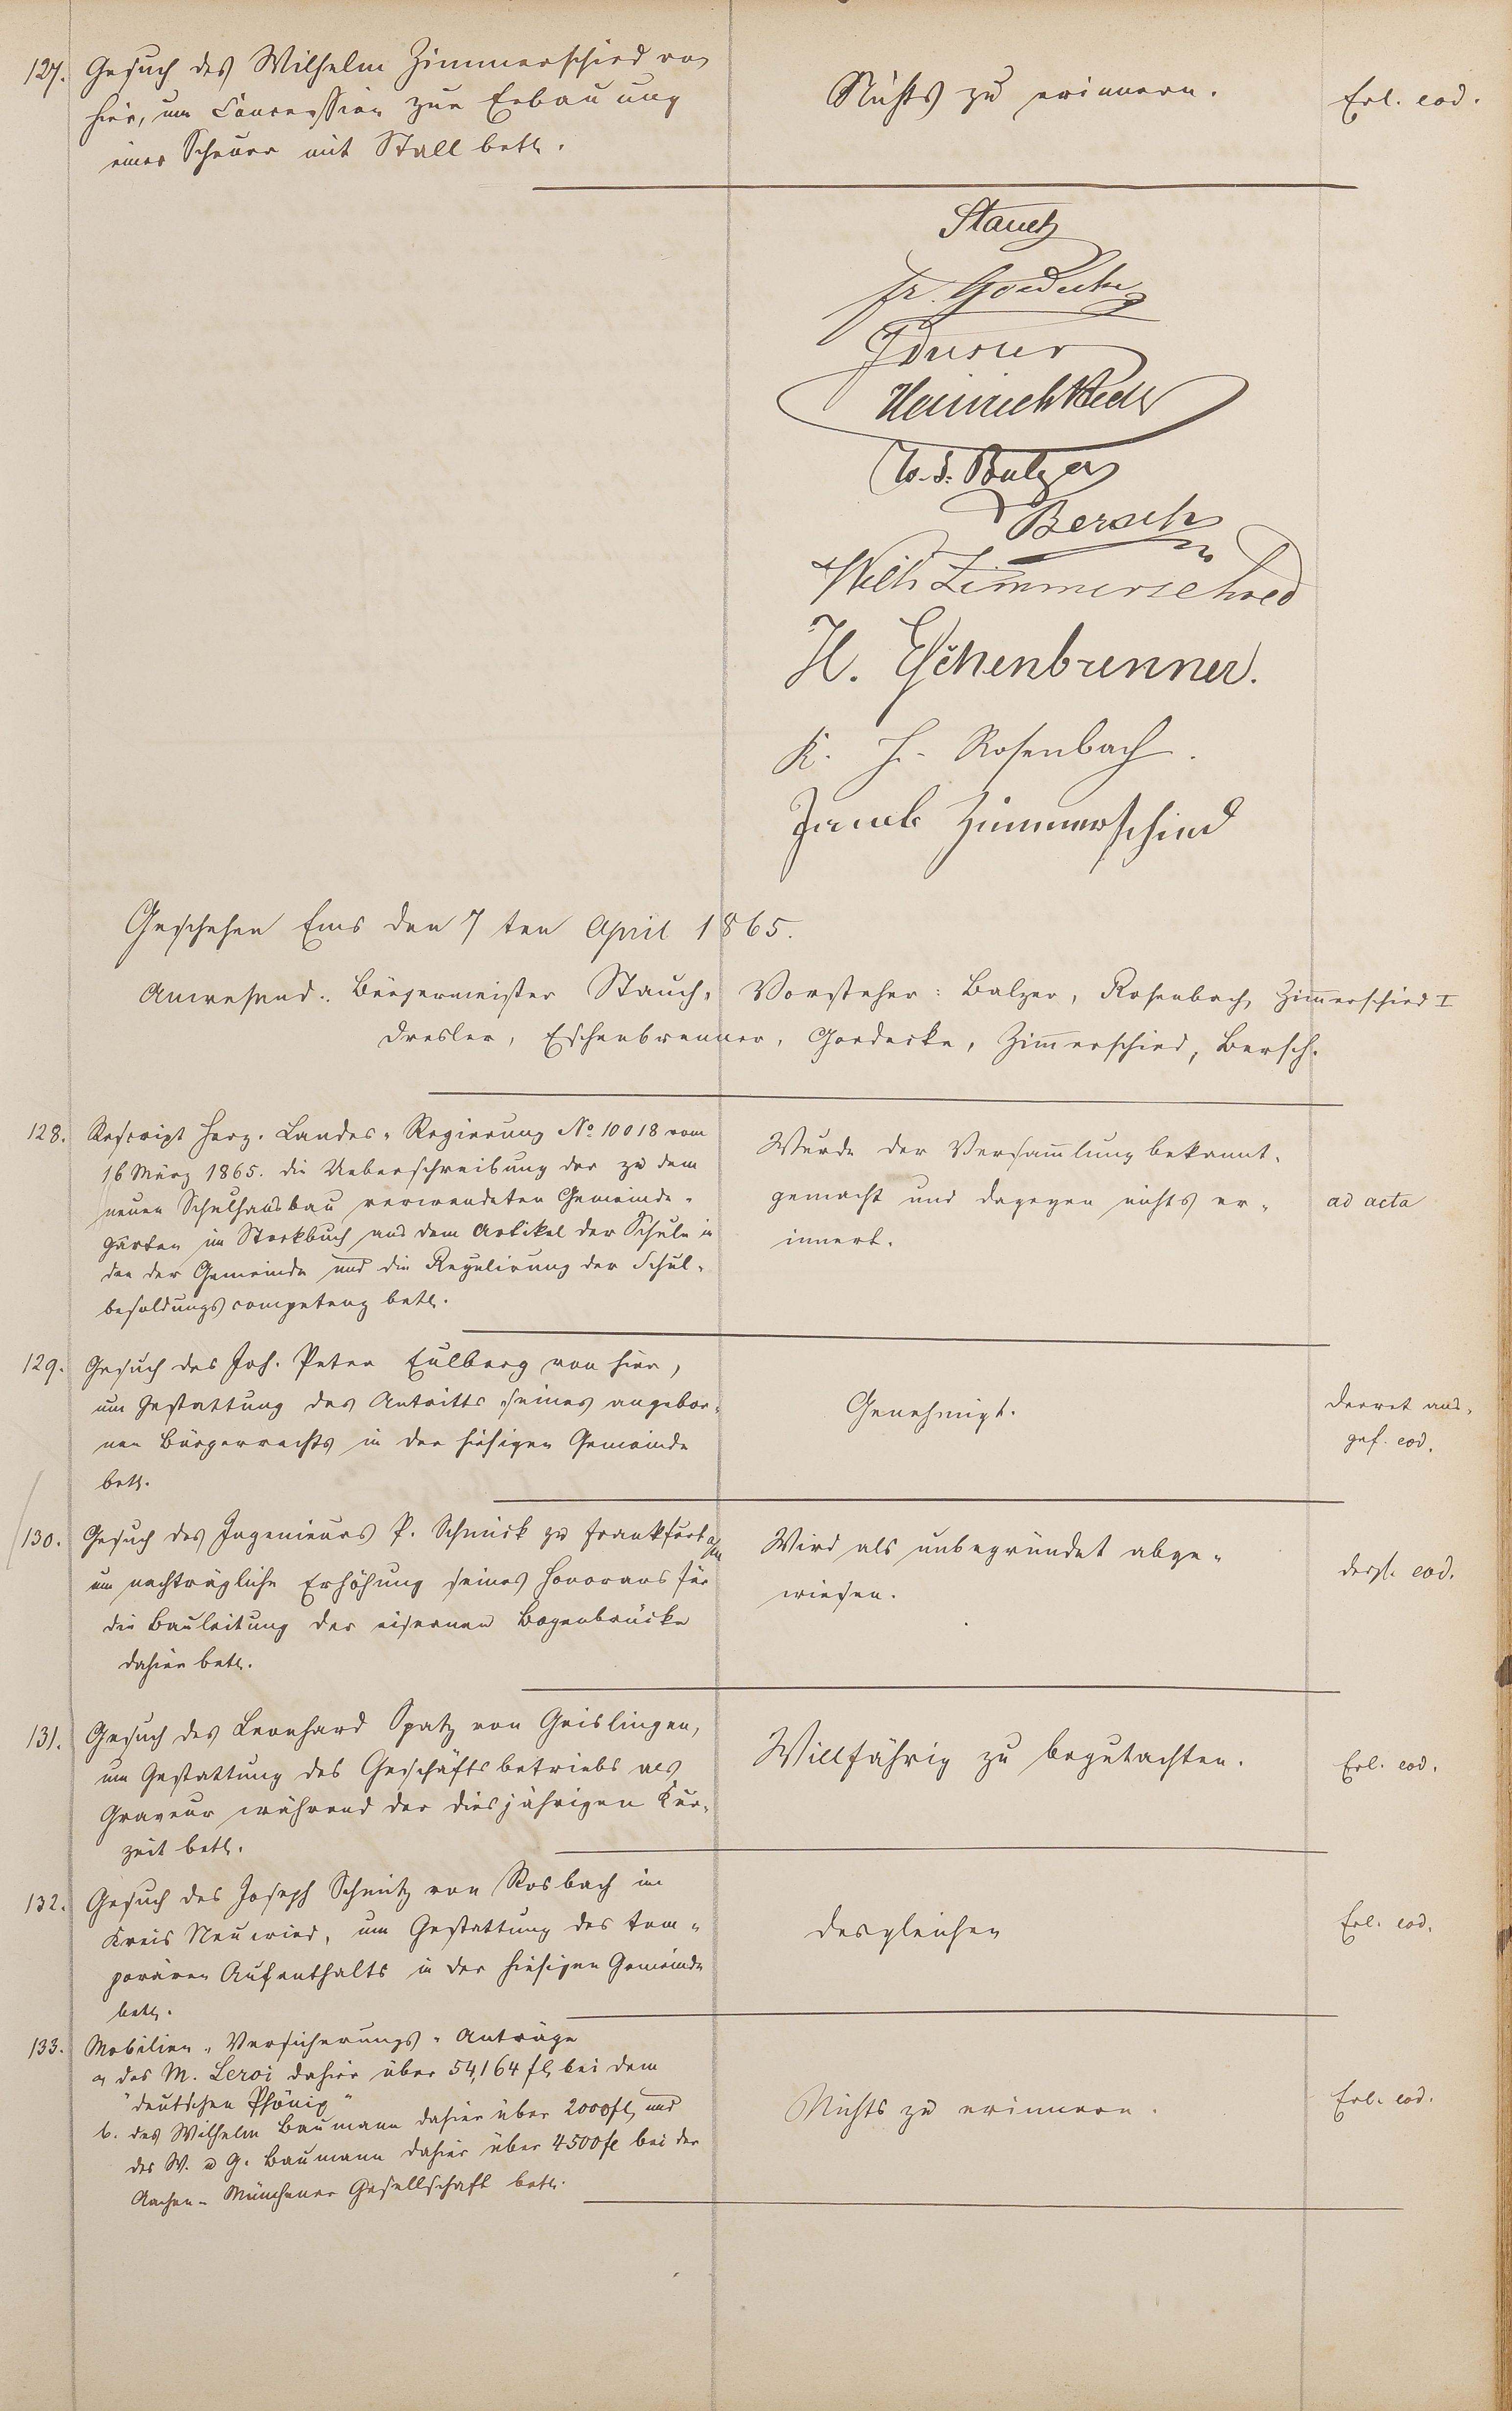 127. Gesuch des Wilhelm Zimmerschied von
hier, um Concession zur Erbauung
einer Scheuer mit Stall betr.
Nichts zu erinnern.
Erl. eod.
Stauch
Fr. Goedecke
J Dresler
Heinrich
W. J. Balzer
Bersch
Wilh Zimmerschied
H. Eschenbrenner.
K. H. Rosenbach.
Jacob Zimmerschied
Geschehen Ems den 7ten April 1865.
Anwesend: Bürgermeister Stauch, Vorsteher: Balzer, Rosenbach, Zimmerschied I
Dresler, Eschenbrenner, Goedecke, Zimmerschied, Bersch.
128. Rescript Herz. Landes-Regierung No 10018 vom
16 März 1865. die Ueberschreibung der zu dem
neuen Schulhausbau verwendeten Gemeinde-
gärten im Stockbuch aus dem Artikel der Schule in
den der Gemeinde und die Regulirung der Schul-
besoldungscompetenz betr.
Wurde der Versammlung bekannt-
gemacht und dagegen nichts er-
innert.
ad acta
129. Gesuch des Joh. Peter Eulberg von hier,
um Gestattung des Antritts seines angebor-
nen Bürgerrechts in der hiesigen Gemeinde
betr.
Genehmigt.
Decret aus-
gef. eod.
130. Gesuch des Ingenieurs P. Schmick zu Frankfurt a/m
um nachträgliche Erhöhung seines Honorars für
die Bauleitung der eisernen Bogenbrücke
dahier betr.
Wird als unbegründet abge-
wiesen.
desgl. eod.
131. Gesuch des Leonhard Spatz von Geislingen,
um Gestattung des Geschäftsbetriebs als
Graveur während der diesjährigen Kur-
zeit betr.
Willfährig zu begutachten.
Erl. eod.
132. Gesuch des Joseph Schmitz von Rosbach im
Kreis Neuwied, um Gestattung des tem-
porären Aufenthalts in der hiesigen Gemeinde
betr.
desgleichen
Erl. eod.
133. Mobilien-Versicherungs-Anträge
a des M. Leroi dahier über 54,164 fl bei dem
"deutschen Phönix"
b. des Wilhelm Baumann dahier über 2000 fl, und
des W. u G. Baumann dahier über 4500 fl bei der
Aachen-Münchener Gesellschaft betr.
Nichts zu erinnern.
Erl. eod.